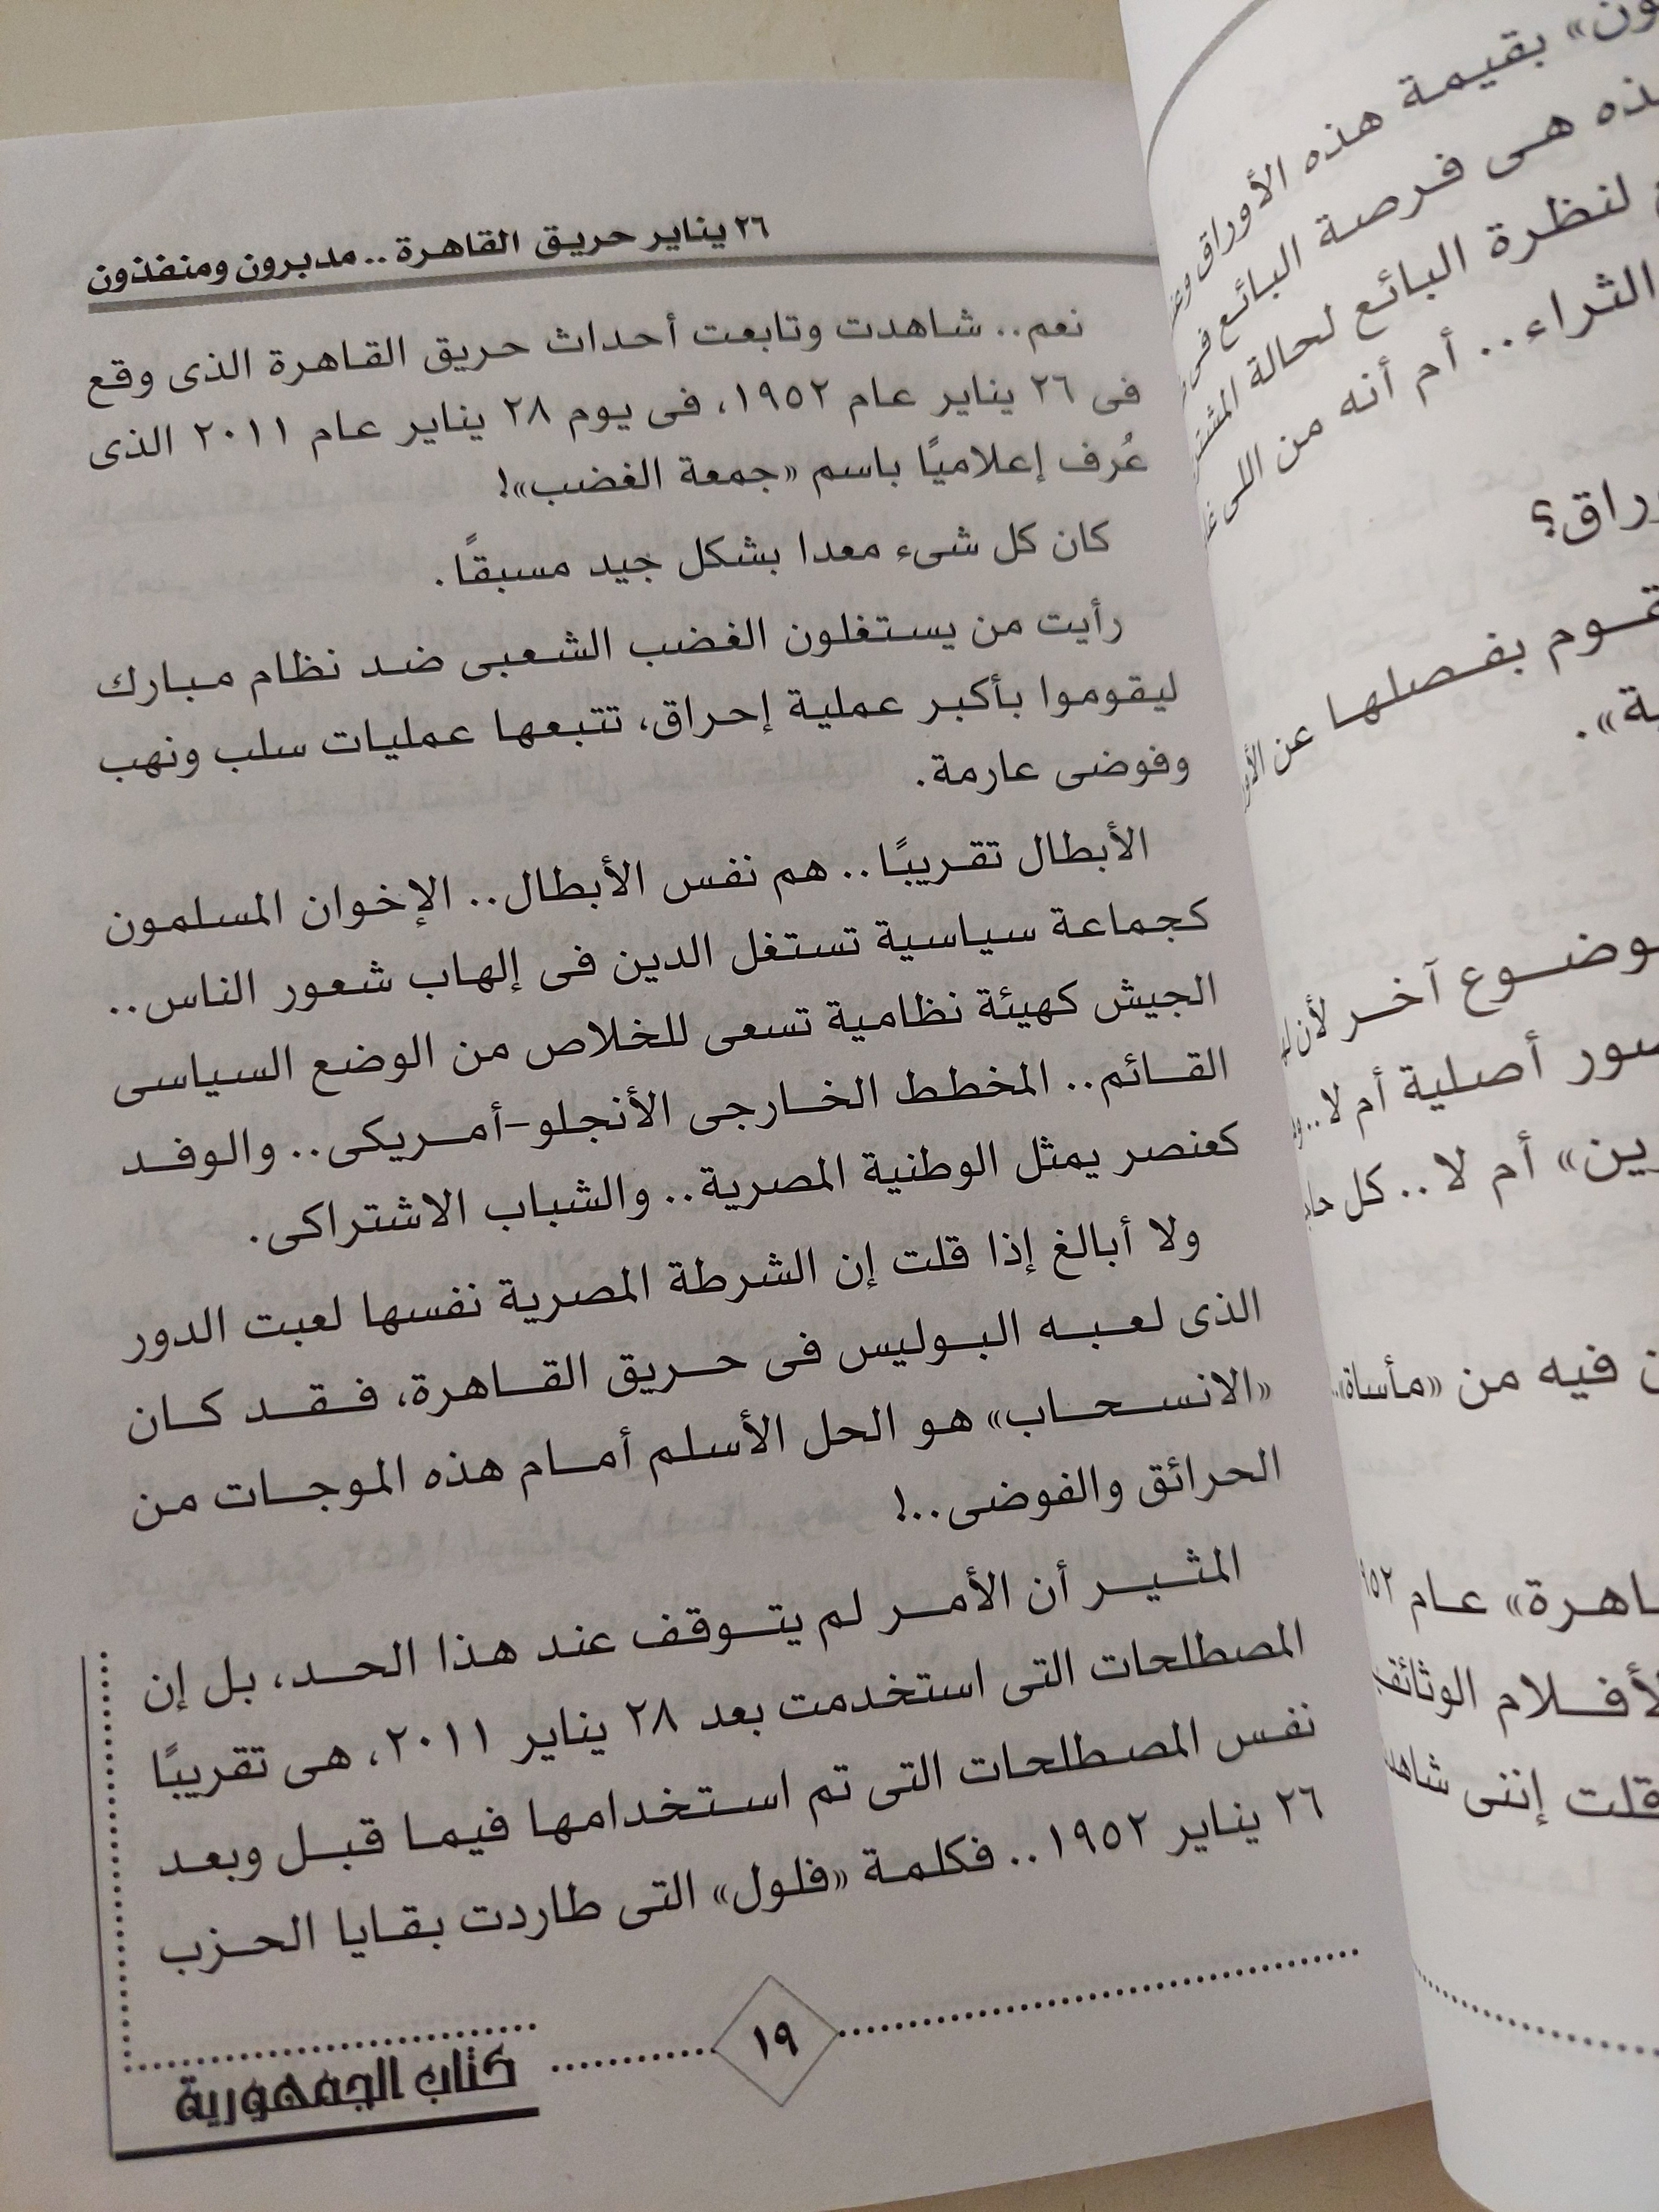 ٢٦ يناير حريق القاهرة .. مدبرون ومنفذون
نعم.. شاهدت وتابعت أحداث حريق القاهرة الذى وقع
فى ٢٦ يناير عام ١٩٥٢، فى يوم ٢٨ يناير عام ٢٠١١ الذى
عُرف إعلاميًا باسم «جمعة الغضب»!
كان كل شىء معدا بشكل جيد مسبقًا.
رأيت من يستغلون الغضب الشعبى ضد نظام مبارك
ليقوموا بأكبر عملية إحراق، تتبعها عمليات سلب ونهب
وفوضى عارمة.
الأبطال تقريبًا.. هم نفس الأبطال.. الإخوان المسلمون
كجماعة سياسية تستغل الدين فى إلهاب شعور الناس..
الجيش كهيئة نظامية تسعى للخلاص من الوضع السياسى
القائم.. المخطط الخارجى الأنجلو-أمريكى.. والوفد
كعنصر يمثل الوطنية المصرية.. والشباب الاشتراكى.
ولا أبالغ إذا قلت إن الشرطة المصرية نفسها لعبت الدور
الذى لعبه البوليس فى حريق القاهرة، فقد كان
«الانسحاب» هو الحل الأسلم أمام هذه الموجات من
الحرائق والفوضى..!
المثير أن الأمر لم يتوقف عند هذا الحد، بل إن
المصطلحات التى استخدمت بعد ٢٨ يناير ٢٠١١، هى تقريبًا
نفس المصطلحات التى تم استخدامها فيما قبل وبعد
٢٦ يناير ١٩٥٢.. فكلمة «فلول» التى طاردت بقايا الحزب
١٩
كتاب الجمهورية
بقيمة هذه الأوراق
هى فرصة البائع فى
لنظرة البائع لحالة
الثراء.. أم أنه من اللى
بفصلها عن
آخر
أصلية أم لا..
أم لا.. كل
فيه من «مأساة»..
عام
الوثائقية
قلت إننى